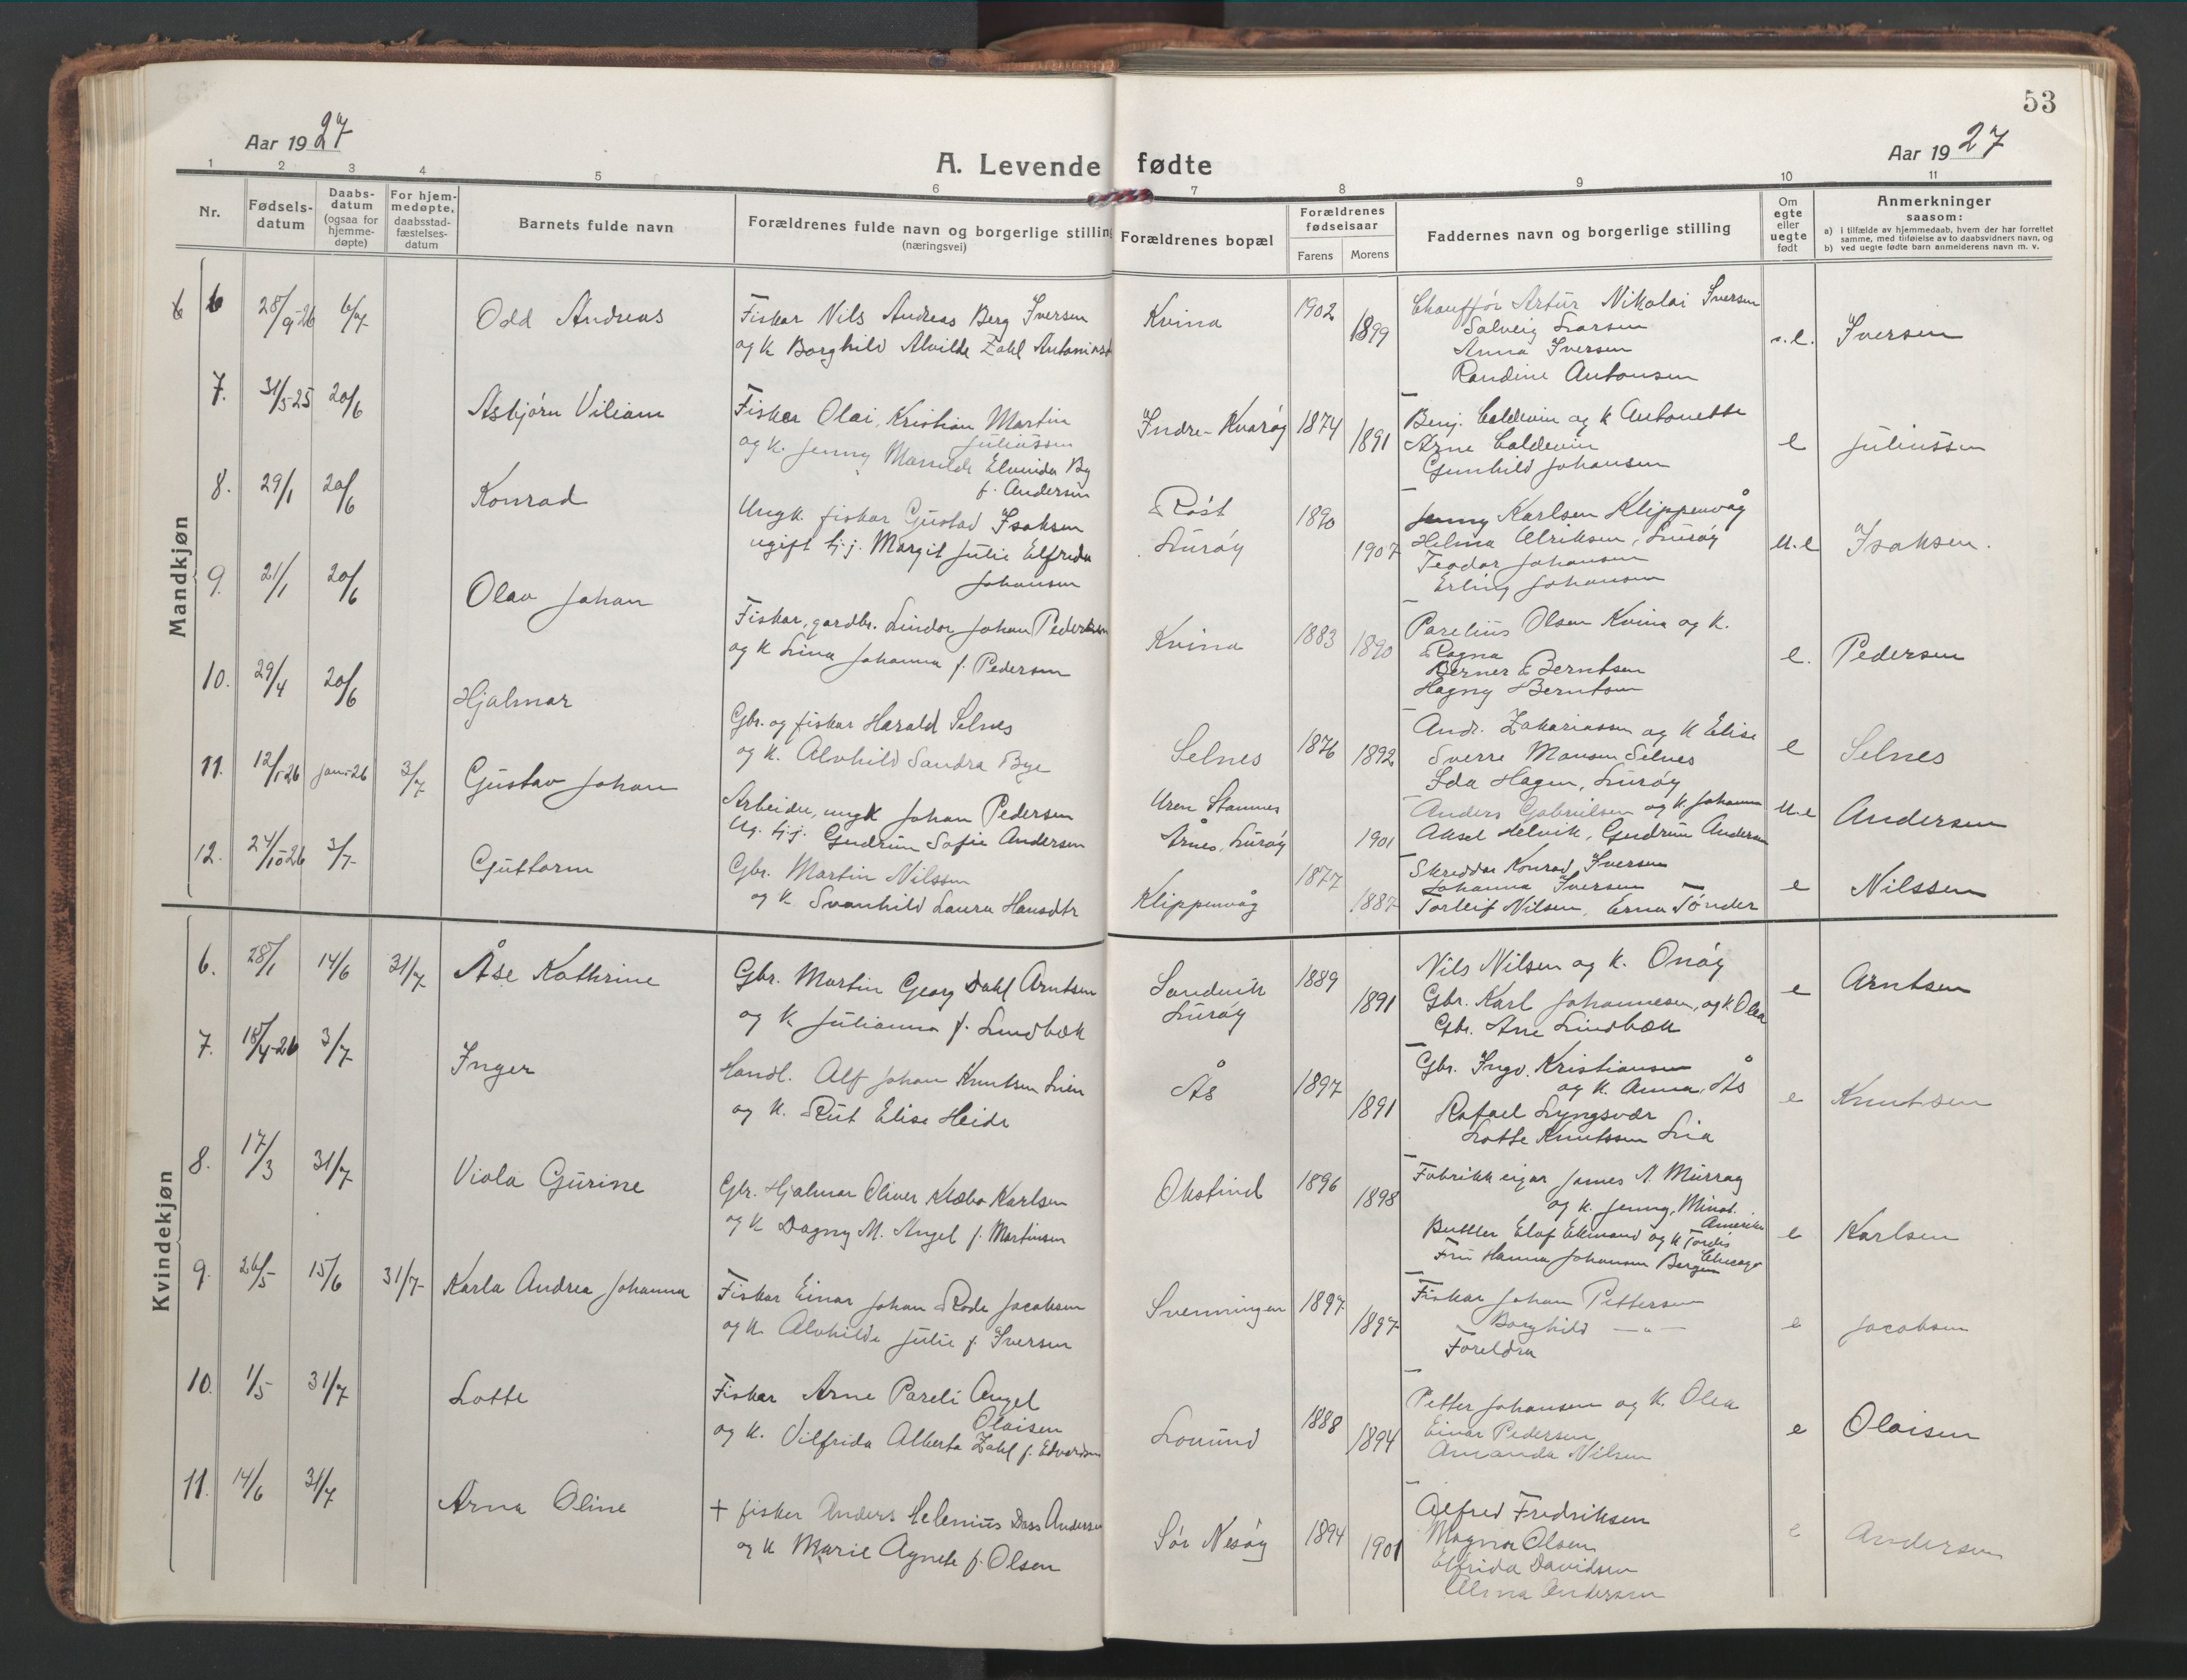 53
Aar 1927
A. Levende fødte
Aar 1927
1 2 3 4 5 6 7 8 9 10 11
Nr.
Fødsels-datum
Daabs-datum (ogsaa for hjemme-døpte)
For hjem-medøpte, daabsstad-fæstelses-datum
Barnets fulde navn
Forældrenes fulde navn og borgerlige stilling (næringsvei)
Forældrenes bopæl
Forældrenes fødselsaar
Farens Morens
Faddernes navn og borgerlige stilling
Om egte eller uegte født
Anmerkninger saasom:
a) i tilfælde av hjemmedaab, hvem der har forrettet samme, med tilføielse av to daabsvidners navn, og
b) ved uegte fødte barn anmelderens navn m. v.
Mandkjøn
6 28/9-26 6/7 Odd Andreas
Fiskar Nils Andreas Berg Iversen
og k Borghild Alvilde Zahl
Kvina 1902 1899
Chauffør Artur Nikolai Iversen
Solveig Larsen
Anna Iversen
Randine Antonsen
Iversen
7. 31/5-25 20/6 Asbjørn Viliam
Fiskar Olai Kristian Martin
Juliussen
og k. Jenny Elvida By
f. Andersen
Indre-Kvarøy 1874 1891
Benj. Caldewin og k Antonette
Arne Caldewin
Gunhild Johansen
e Juliussen
8. 29/1 20/6 Konrad
Ungk. fiskar Gustad Isaksen
ugift tj.j. Margit Julie Elfrida
Johansen
Røst
Lurøy
1890 1907
Jenny Karlsen Klippenvåg
Helma Ulriksen, Lurøy
Teodor Johansen
Erling Johansen
u.e Isaksen.
9. 21/1 20/6 Olav Johan
Fiskar, gardbr. Lindor Johan Pedersen
og k Lina Johanna f. Pedersen
Kvina 1883 1890
Parelius Olsen Kvina og k.
Ragna
Berner Berntsen
Hagny Berntsen
e. Pedersen
10. 29/4 20/6 Hjalmar
Gbr. og fiskar Harald Selnes
og k. Alvhild Sandra Bye
Selnes 1876 1892
Andr. Zakariassen og k Elise
Sverre Monsen Selnes
Ida Hagen, Lurøy
e Selnes
11. 12/1-26 jan.-26 3/7 Gustav Johan
Arbeider, ungk Johan Pedersen
Ug. tj.j. Gudrun Sofie Andersen
Uren Stamnes
Årnes, Lurøy
1901
Anders Gabrielsen og k. Johanna
Aksel Helvik, Gudrun Andersen
u.e Andersen
12. 24/10-26 3/7 Guttorm
Gbr. Martin Nilssen
og k. Svanhild Laura Hansdtr
Klippenvåg 1877 1887
Skreddar Konrad Iversen
Johanna Iversen
Torleif Nilsen, Erna Tønder
e Nilssen
Kvindekjøn
6. 28/1 14/6 31/7 Åse Kathrine
Gbr. Martin Georg Dahl Arntsen
og k Julianna f. Lundbæk
Sandvik
Lurøy
1889 1891
Nils Nilsen og k. Onøy
Gbr. Karl Johannesen, og k Olea
Gbr. Are Lindbæk
e Arntsen
7. 18/4-26 3/7 Inger
Handl. Alf Johan Knutsen Lien
og k. Rut Elise Heide
Ås 1897 1891
Gbr. Ingv. Kristiansen
og k. Anna, Ås
Rafael Lyngsvær
Lotte Knutssen Lia
e Knutsen
8. 17/3 31/7 Viola Gurine
Gbr. Hjalmar Oliver Klæbo Karlsen
og k Dagny M. Angel f. Martinsen
Okstind 1896 1898
Fabrikkeigar James A. Murray
og k. Jenny, Minot.
Amerika
Buttler Elof Ekmand og k Tordis
Chicago
Fru Hanna Johansen Bergen
e Karlsen
9. 26/5 15/6 31/7 Karla Andrea Johanna
Fiskar Einar Johan Rode Jacobsen
og k. Alvhilde Julie f. Iversen
Svenningen 1897 1897
Fiskar Johan Pettersen
Borghild — " —
Foreldra
e Jacobsen
10. 1/5 31/7 Lotte
Fiskar Arne Pareli Angel
Olaisen
og k. Vilfrida Alberta Zahl f. Edvardsen
Lovund 1888 1894
Petter Johansen og k. Olea
Einar Pedersen
Amanda Nilsen
e Olaisen
11. 14/6 31/7 Arna Oline
+ fisker Anders Helenius Dass Andersen
og k Marie Agnete f. Olsen
Sør Nesøy 1894 1901
Alfred Fredriksen
Magna Olsen
Elfrida Davidsen
Alma Andersen
e Andersen